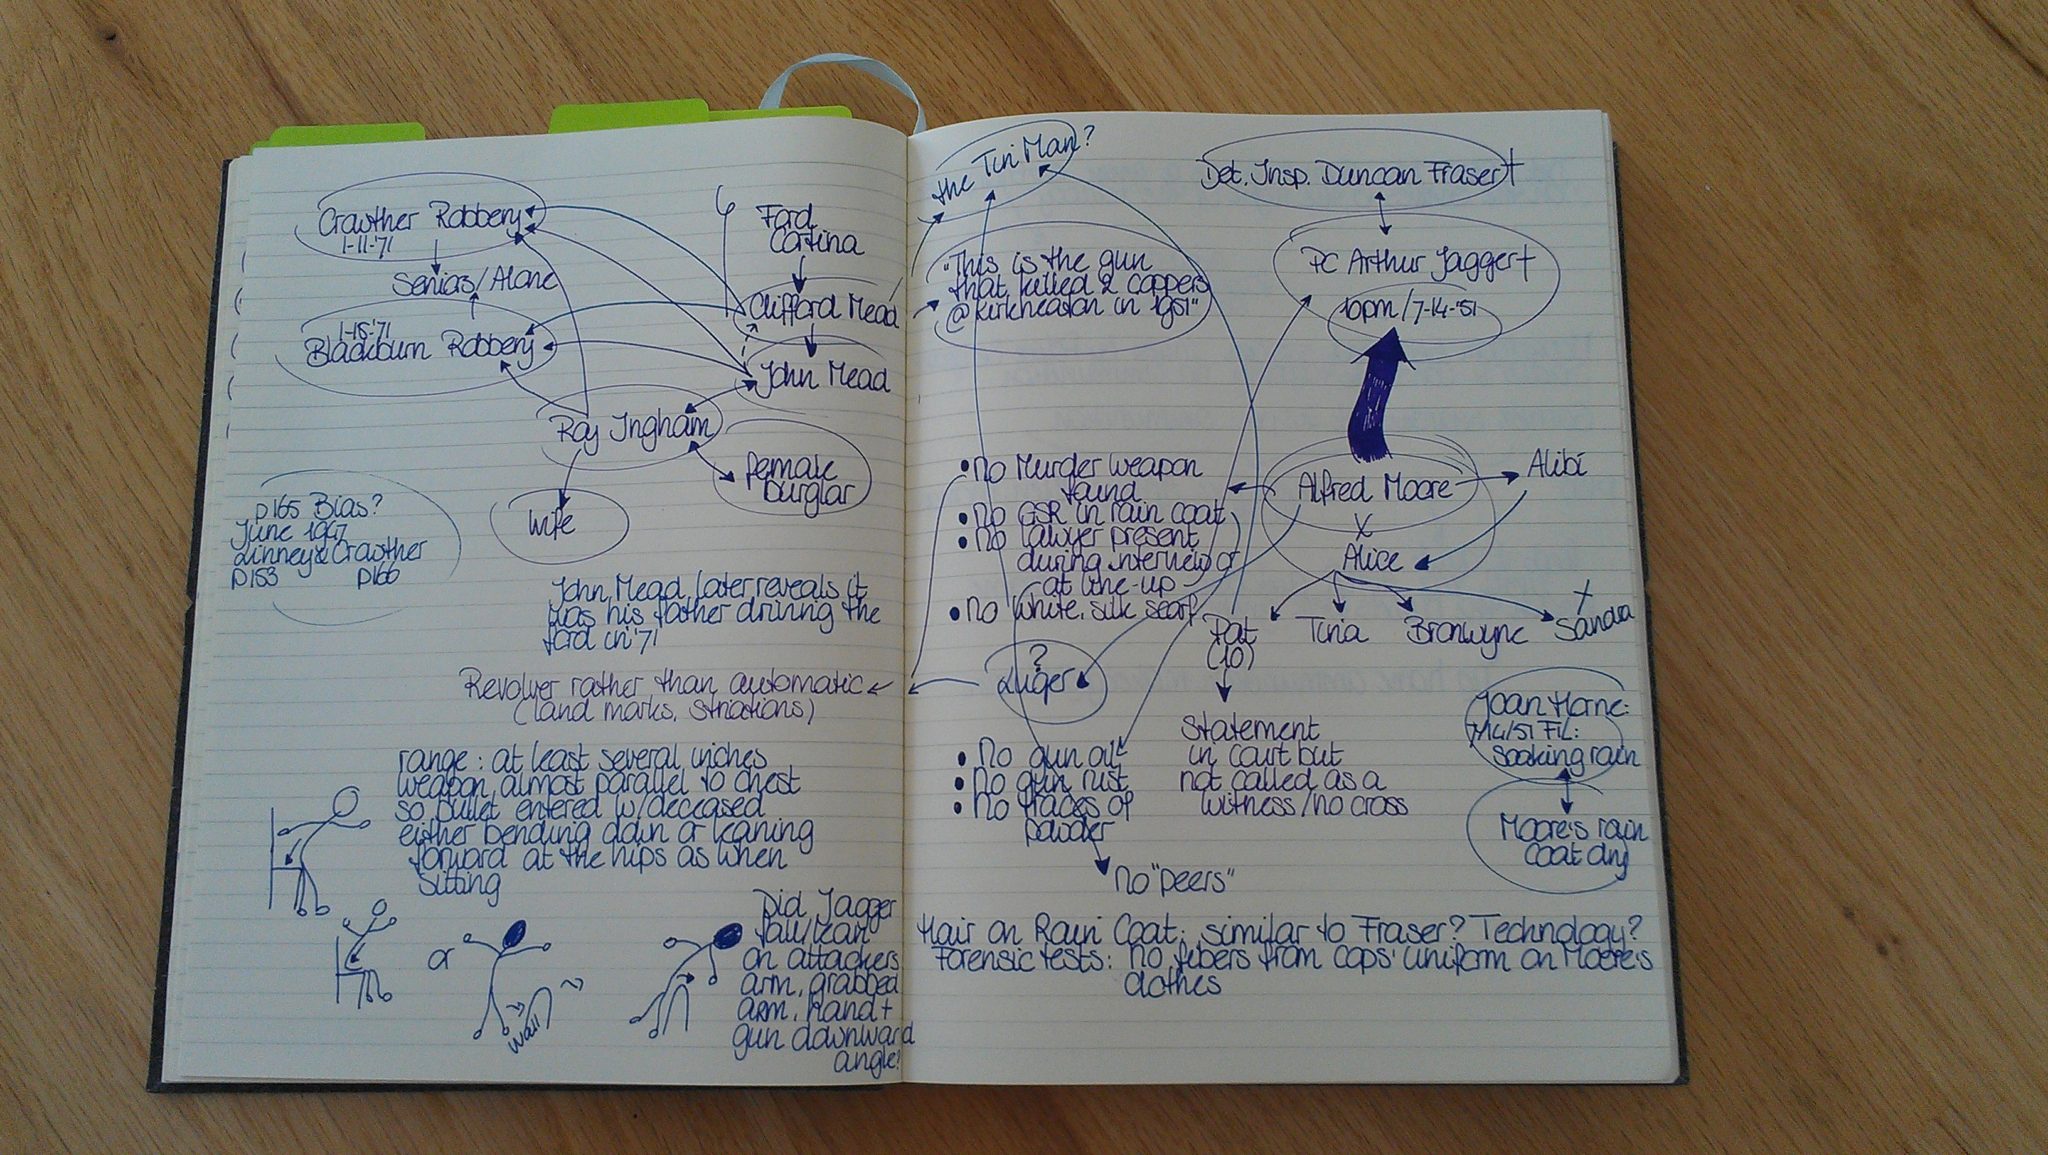 Crowther Robbery
1-11-'71
Seniors/Alone
1-15-'71
Blackburn Robbery
Ford
Cortina
Clifford Mead
John Mead
Ray Ingham
female
burglar
wife
p165 Bias?
June 1947
Linney & Crowther
p153 p166
John Mead later reveals it
was his father driving the
ford in '71
Revolver rather than automatic
(land marks, striations)
range: at least several inches
weapon almost parallel to chest
so bullet entered w/deceased
either bending down or leaning
forward at the hips as when
sitting
or
wall
Did Jagger
fall/lean
on attackers
arm, grabbed
arm, hand +
gun downward
angle?
the Tin Man?
"This is the gun
that killed 2 coppers
@ Kirkheaton in 1951"
Det. Insp. Duncan Fraser†
PC Arthur Jagger†
10pm/7-14-'51
• No Murder weapon
found
• No GSR in rain coat
• No lawyer present
during interview or
at line-up
• No white, silk scarf
Alfred Moore
Alibi
X
Alice
Pat
(10)
Tina
Bronwyne
X
Sandra
?
Luger
Statement
in court but
not called as a
witness/no cross
Joan Horne:
7/14/51 FIL:
soaking rain
Moore's rain
coat dry
• No gun oil
• No gun rust
• No traces of
powder
No "peers"
Hair on Rain Coat: similar to Fraser? Technology?
Forensic tests: No fibers from cops' uniform on Moore's
clothes